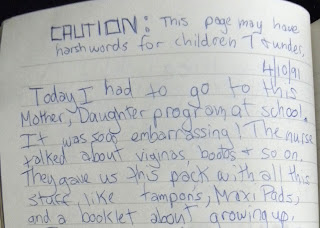 CAUTION: This page may have
harsh words for children 7 & under.
4/10/91
Today I had to go to this
Mother, Daughter program at school.
It was soo embarrassing! The nurse
talked about viginas, boobs & so on.
They gave us this pack with all this
stuff, like tampons, Maxi Pads,
and a booklet about growing up.